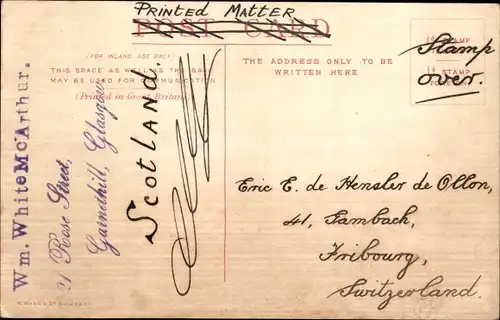 PRINTED MATTER
POST CARD
(FOR INLAND USE ONLY)
THIS SPACE AS WELL AS THE BACK
MAY BE USED FOR COMMUNICATION
(Printed in Great Britain)
THE ADDRESS ONLY TO BE
WRITTEN HERE
½d STAMP
1d STAMP
Stamp
over.
Wm. White McArthur.
21 Rose Street,
Garnethill, Glasgow
Scotland.
Eric E. de Hensler de Ollon,
41, Lambach,
Fribourg,
Switzerland.